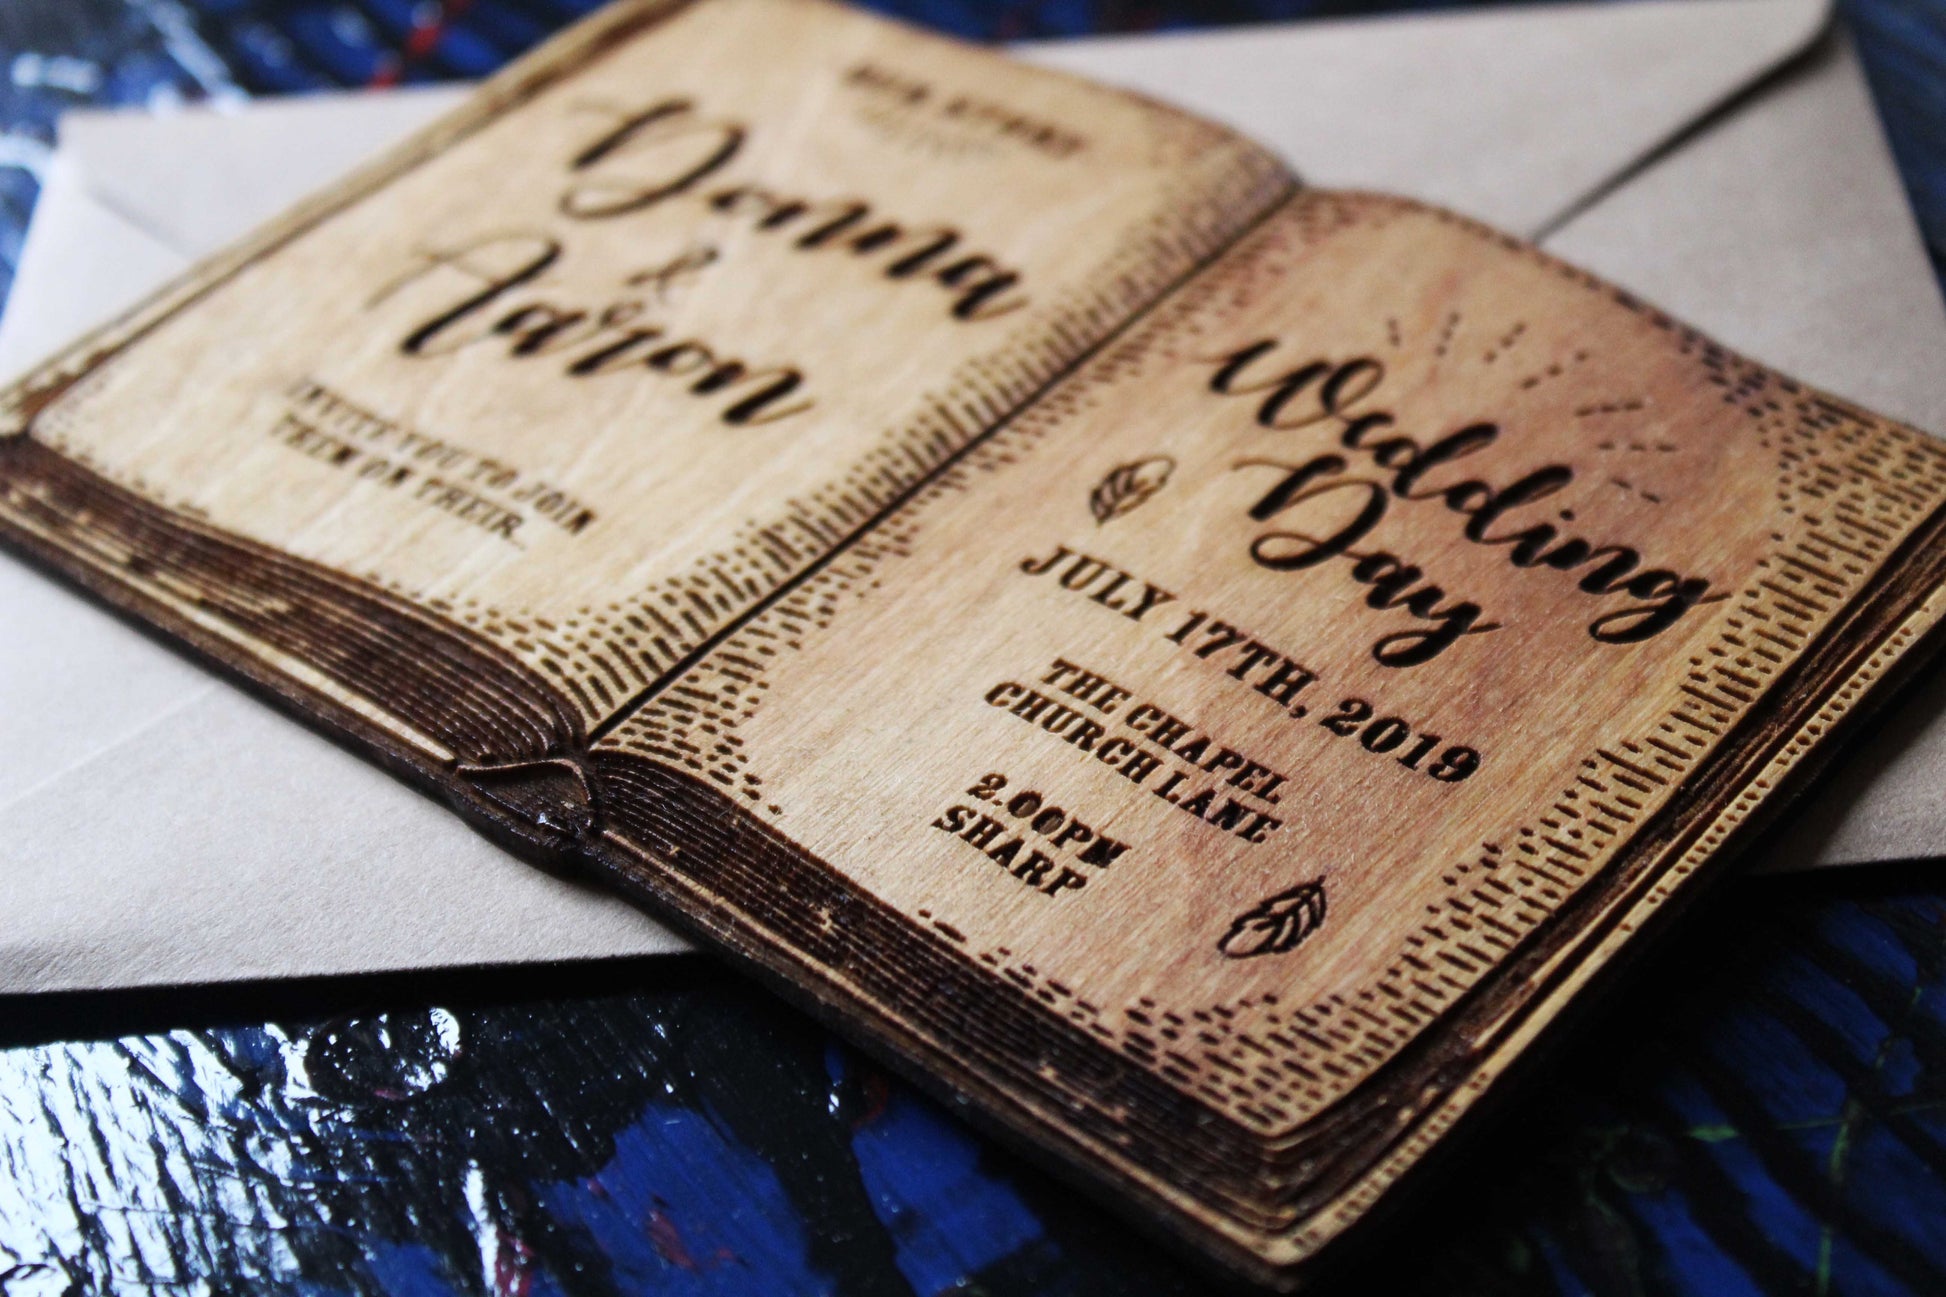 OUR STORY
Donna
&
Aaron
INVITE YOU TO JOIN
THEM ON THEIR..
Wedding
Day
JULY 17TH, 2019
THE CHAPEL
CHURCH LANE
2.00PM
SHARP